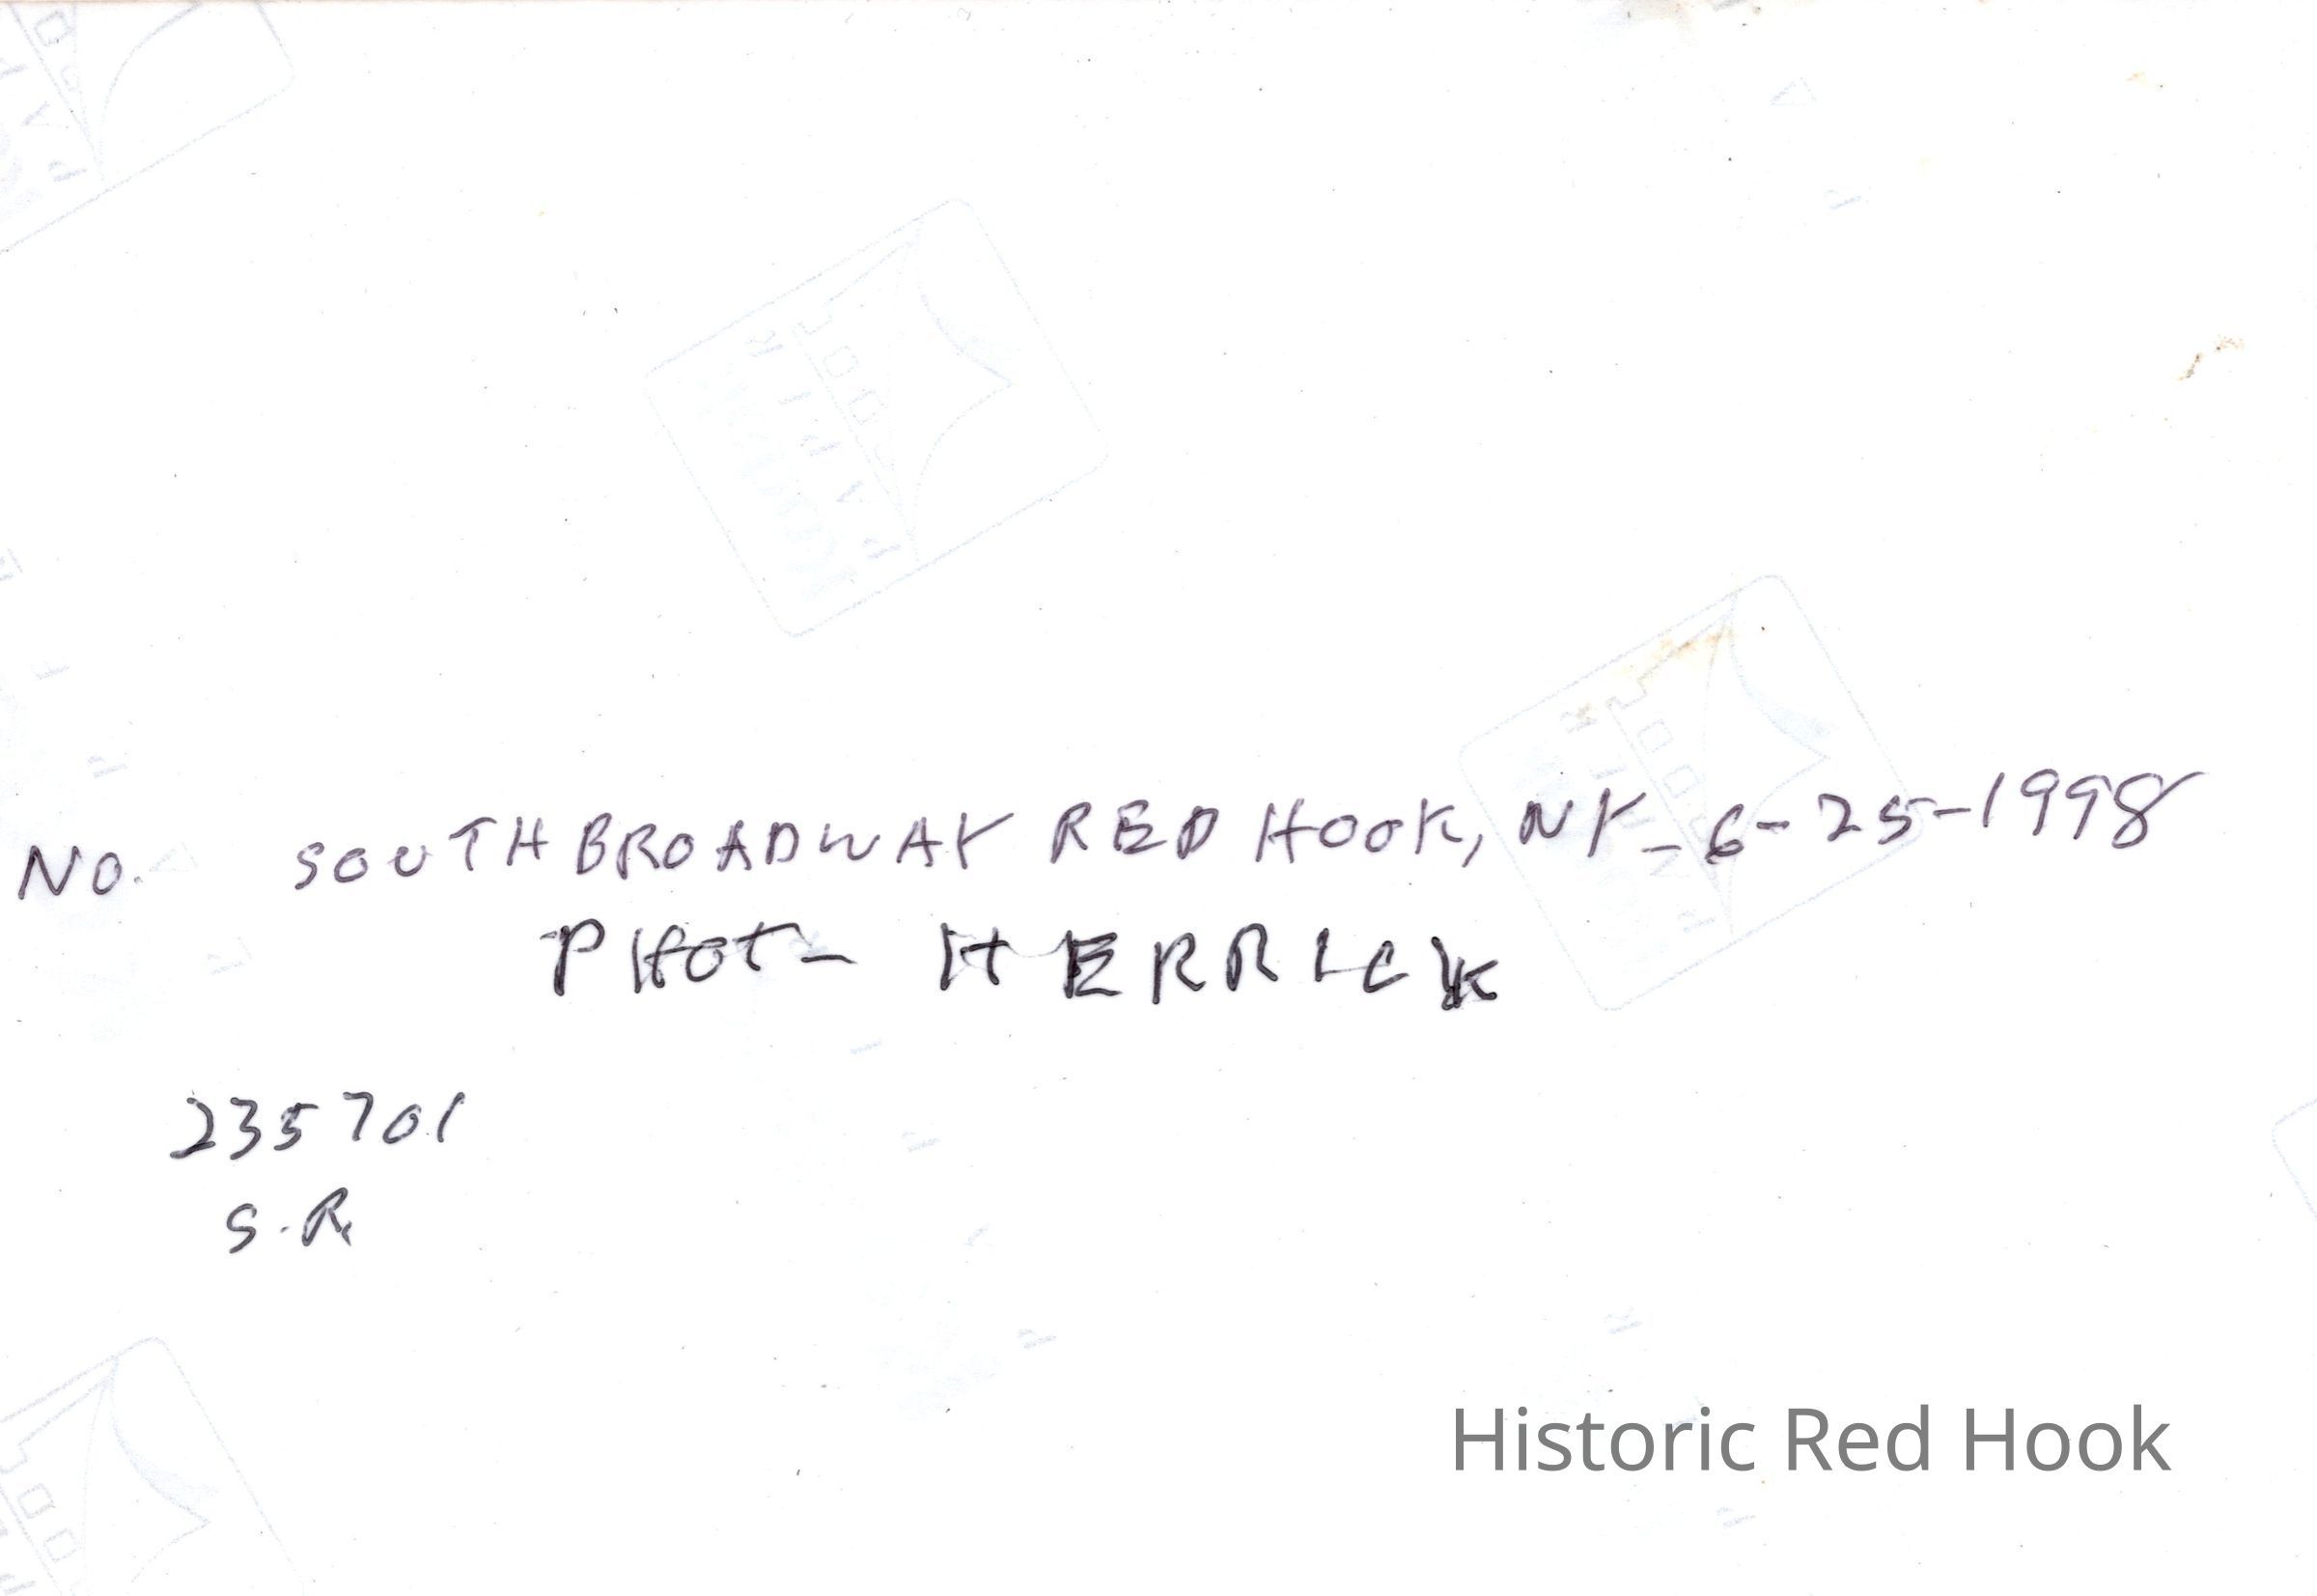 NO. SOUTH BROADWAY RED HOOK, NY - 6-25-1998
PHOT- HERRICK
235701
S.R.
Historic Red Hook